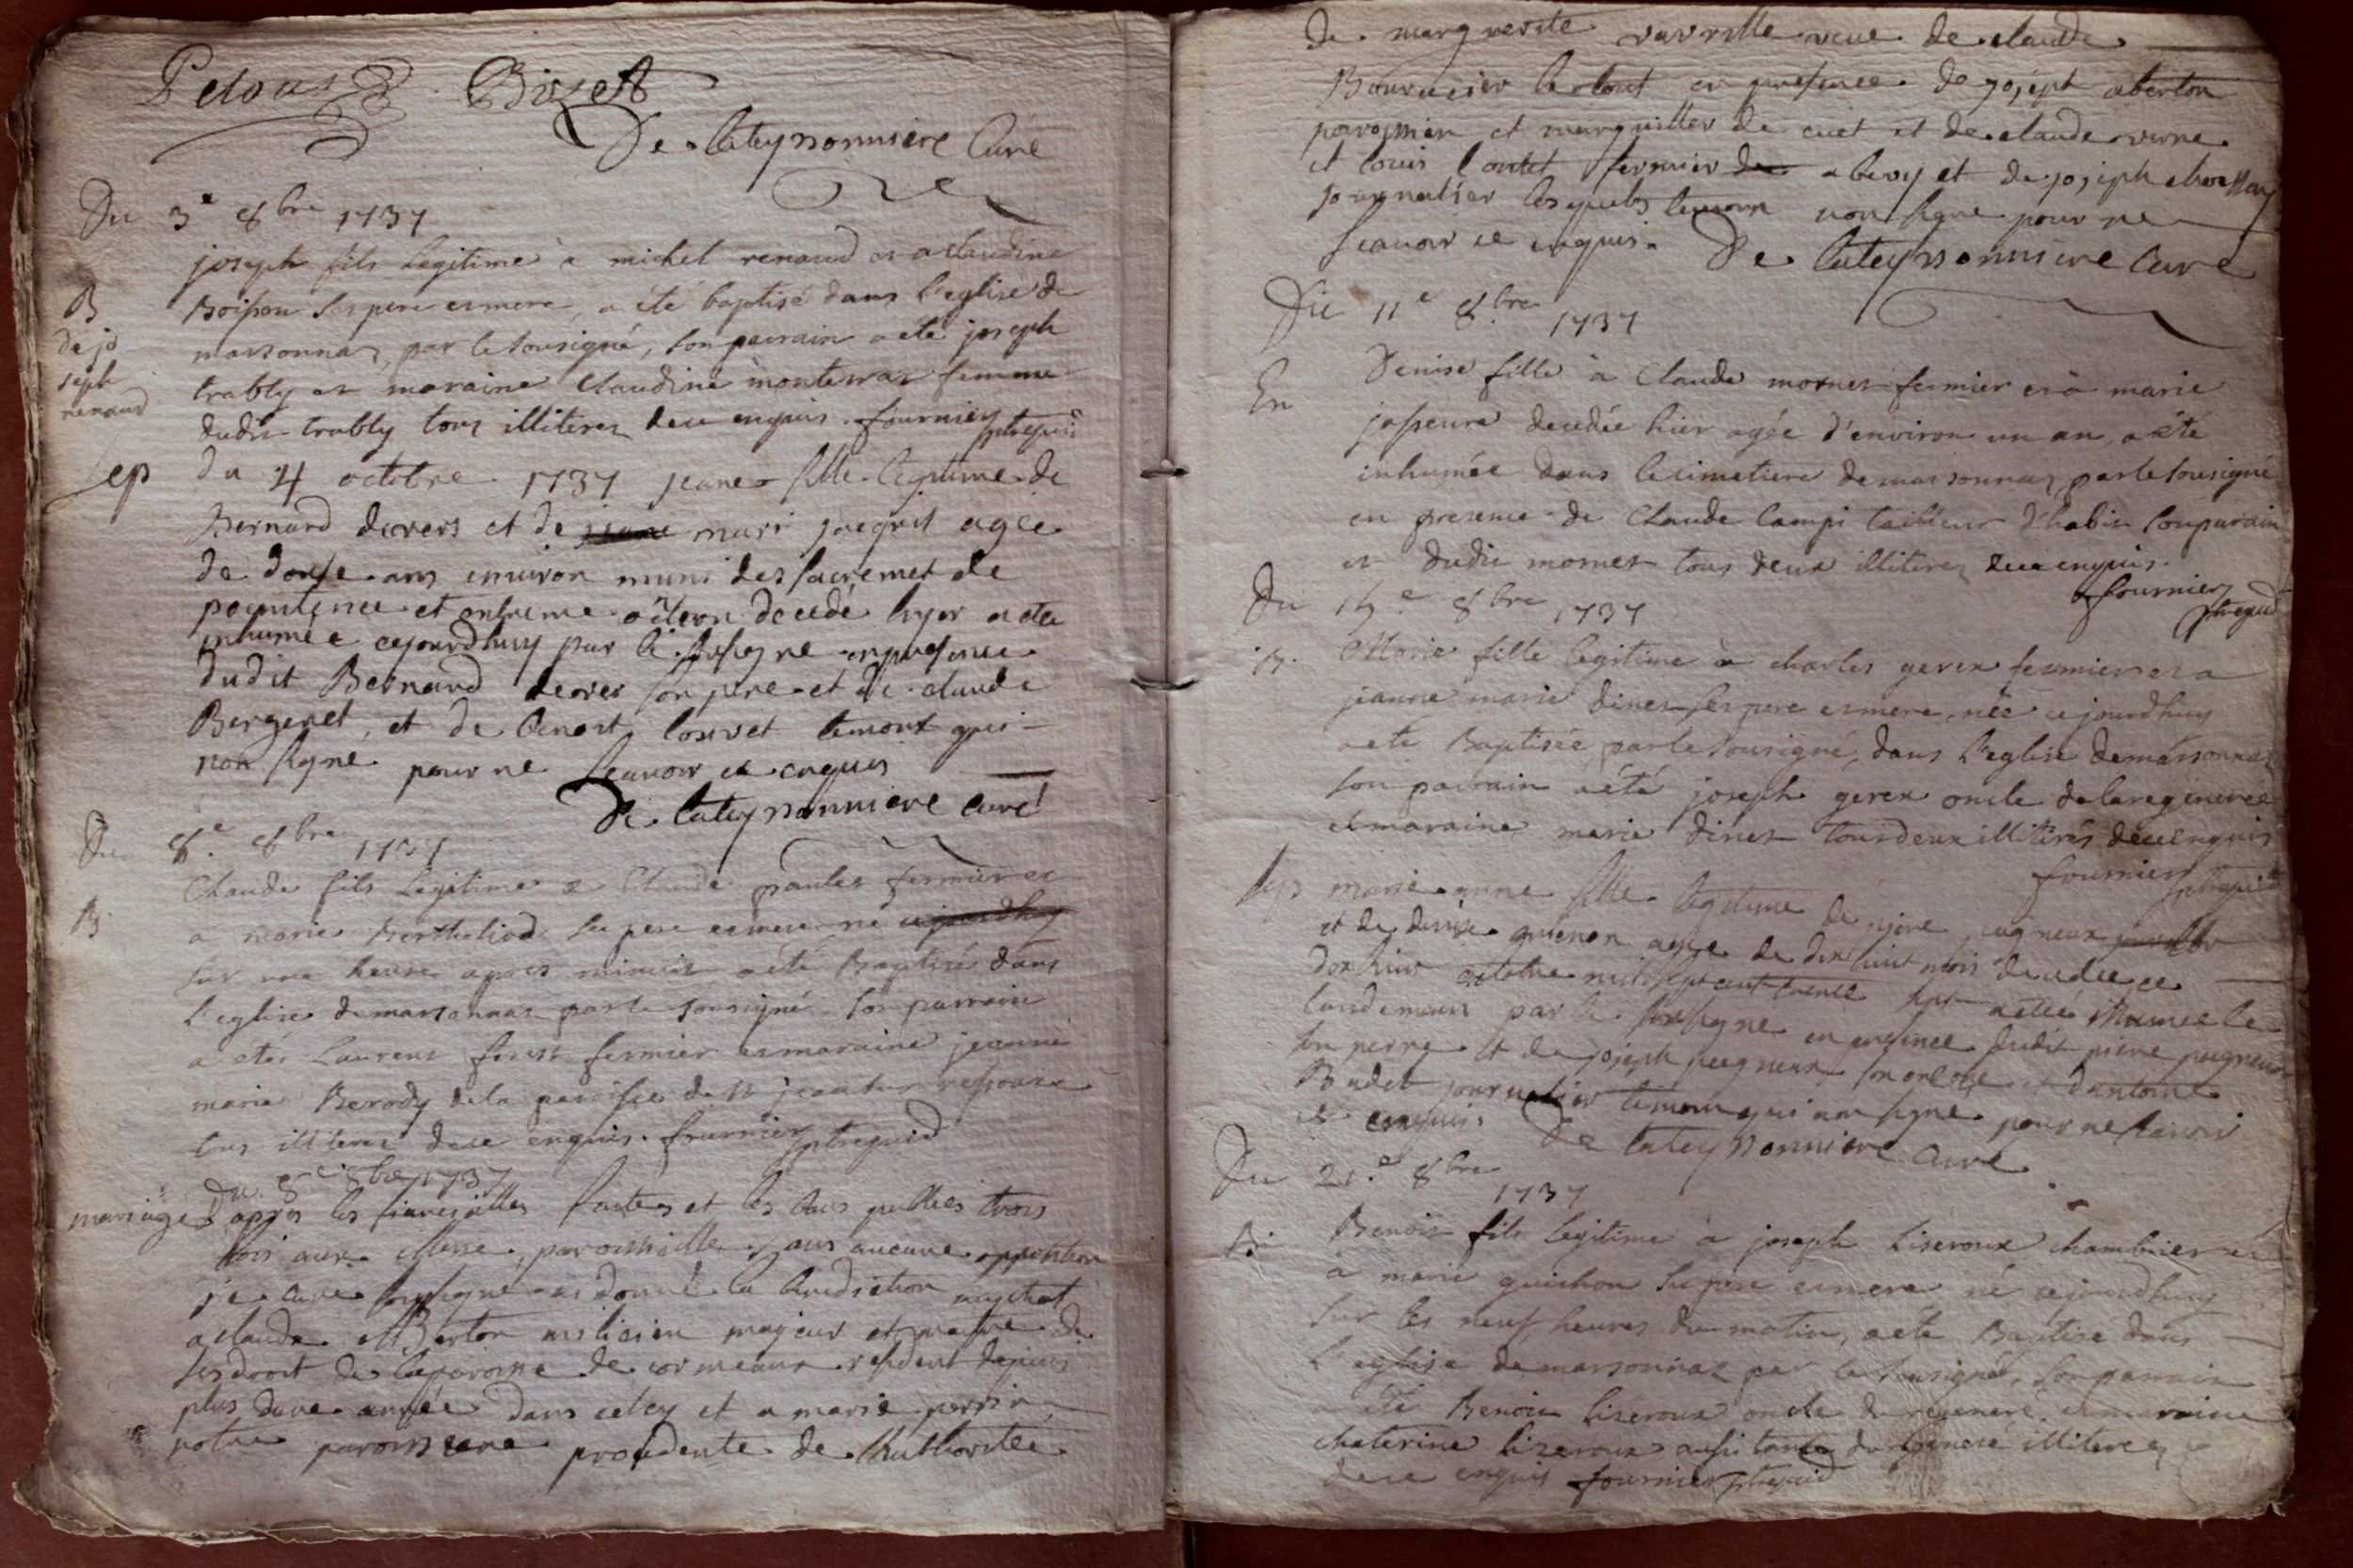 Bizet
De lateyssonniere Curé
Du 3e 8bre 1737
joseph fils Legitime à michel renaud et a claudine
B
de jo
seph
renaud
Boisson ses pere et mere, a eté baptisé dans l'eglise de
marsonnaz, par le sousigné, son parrain a eté joseph
trably et maraine Claudine monterrat femme
dudit trably tous illiteres de ce enquis. fournier
Sep
du 4 octobre 1737 jeane fille legitime de
Bernard devers et de mari jacquit agée
de douse ans environ muni des sacremet de
poenitence et extreme oction decedé hyer a eté
inhumée cejourdhuy par le sousigne en presence
dudit Bernard dever son pere et de claude
Bergeret, et de Benoit louvet temoint qui
non signe pour ne scavoir ce enquis
De lateyssonniere curé
Du 8e 8bre 1737
Claude fils Legitime a Claude fermier et
B
a marie Bertheliod ses pere et mere né cejourdhuy
sur une heure apres minuit a eté Baptisé dans
l'eglise de marsonnas par le sousigné son parrain
a etés Laurent fermier et maraine jeanne
marie Berody de la paroisse de St jean sur ressouze
tous illiteres de ce enquis. fournier
Du 8e 8bre 1737
mariage
apres les fiancailles faites et les bans publies trois
fois aux Messe paroissialle sans aucune opposition
je curé sousigne ai donné la benediction nuptial
a claude Alberton milicien majeur et maitre de
ses droit de la paroisse de cormeaux resident depuis
plus dune année dans cetcy et a marie perrin
notre paroissiene procedente de l'authorité
de marguerite veuve de claude
le tout en presence de joseph aberton
paroissien et marguiller de cuet et de claude
et louis fermier a bevy et de joseph
journalier lesquels temoin non signe pour ne
scavoir ce enquis. De lateyssonniere Curé
Du 11e 8bre 1737
En
Denise fille à Claude mornet fermier et à marie
josserand decedée hier agée d'environ un an, a été
inhumée dans le cimetiere de marsonnaz par le sousigné
en presence de Claude Campi tailleur d'habit son parain
et dudit mornet tous deux illiteres de ce enquis.
fournier
Du 8bre 1737
B.
Marie fille legitime à charles gerex fermier et a
jeanne marie dinet ses pere et mere, née cejourdhuy
a eté Baptisée, par le sousigné, dans l'eglise de marsonnaz
son parrain a été joseph gerex oncle de la regenerée
et maraine marie dinet tous deux illiterés de ce enquis
fournier
Sep
marie anne fille legitime de piere pugneux
et de denise agée de dix huit mois decedee ce
dix huit octobre mil sept cent trente sept a eté inhumée le
landemain par le sousigne en presence dudit piere pugneux
son perre et de joseph pugneux son oncle et dantoine
Budet journalier temoin qui non signe pour ne scavoir
ce enquis. De lateyssonniere curé
Du 21e 8bre 1737
B
Benoit fils legitime à joseph Liseroux chambrier et
a marie guichon ses pere et mere né cejourdhuy
sur les neuf heures du matin, a eté Baptisé dans
l'eglise de marsonnaz par le sousigné, son parrain
été Benoit liseroux oncle du regeneré et maraine
chaterine lizeroux aussi tante du regeneré illiteres
de ce enquis fournier